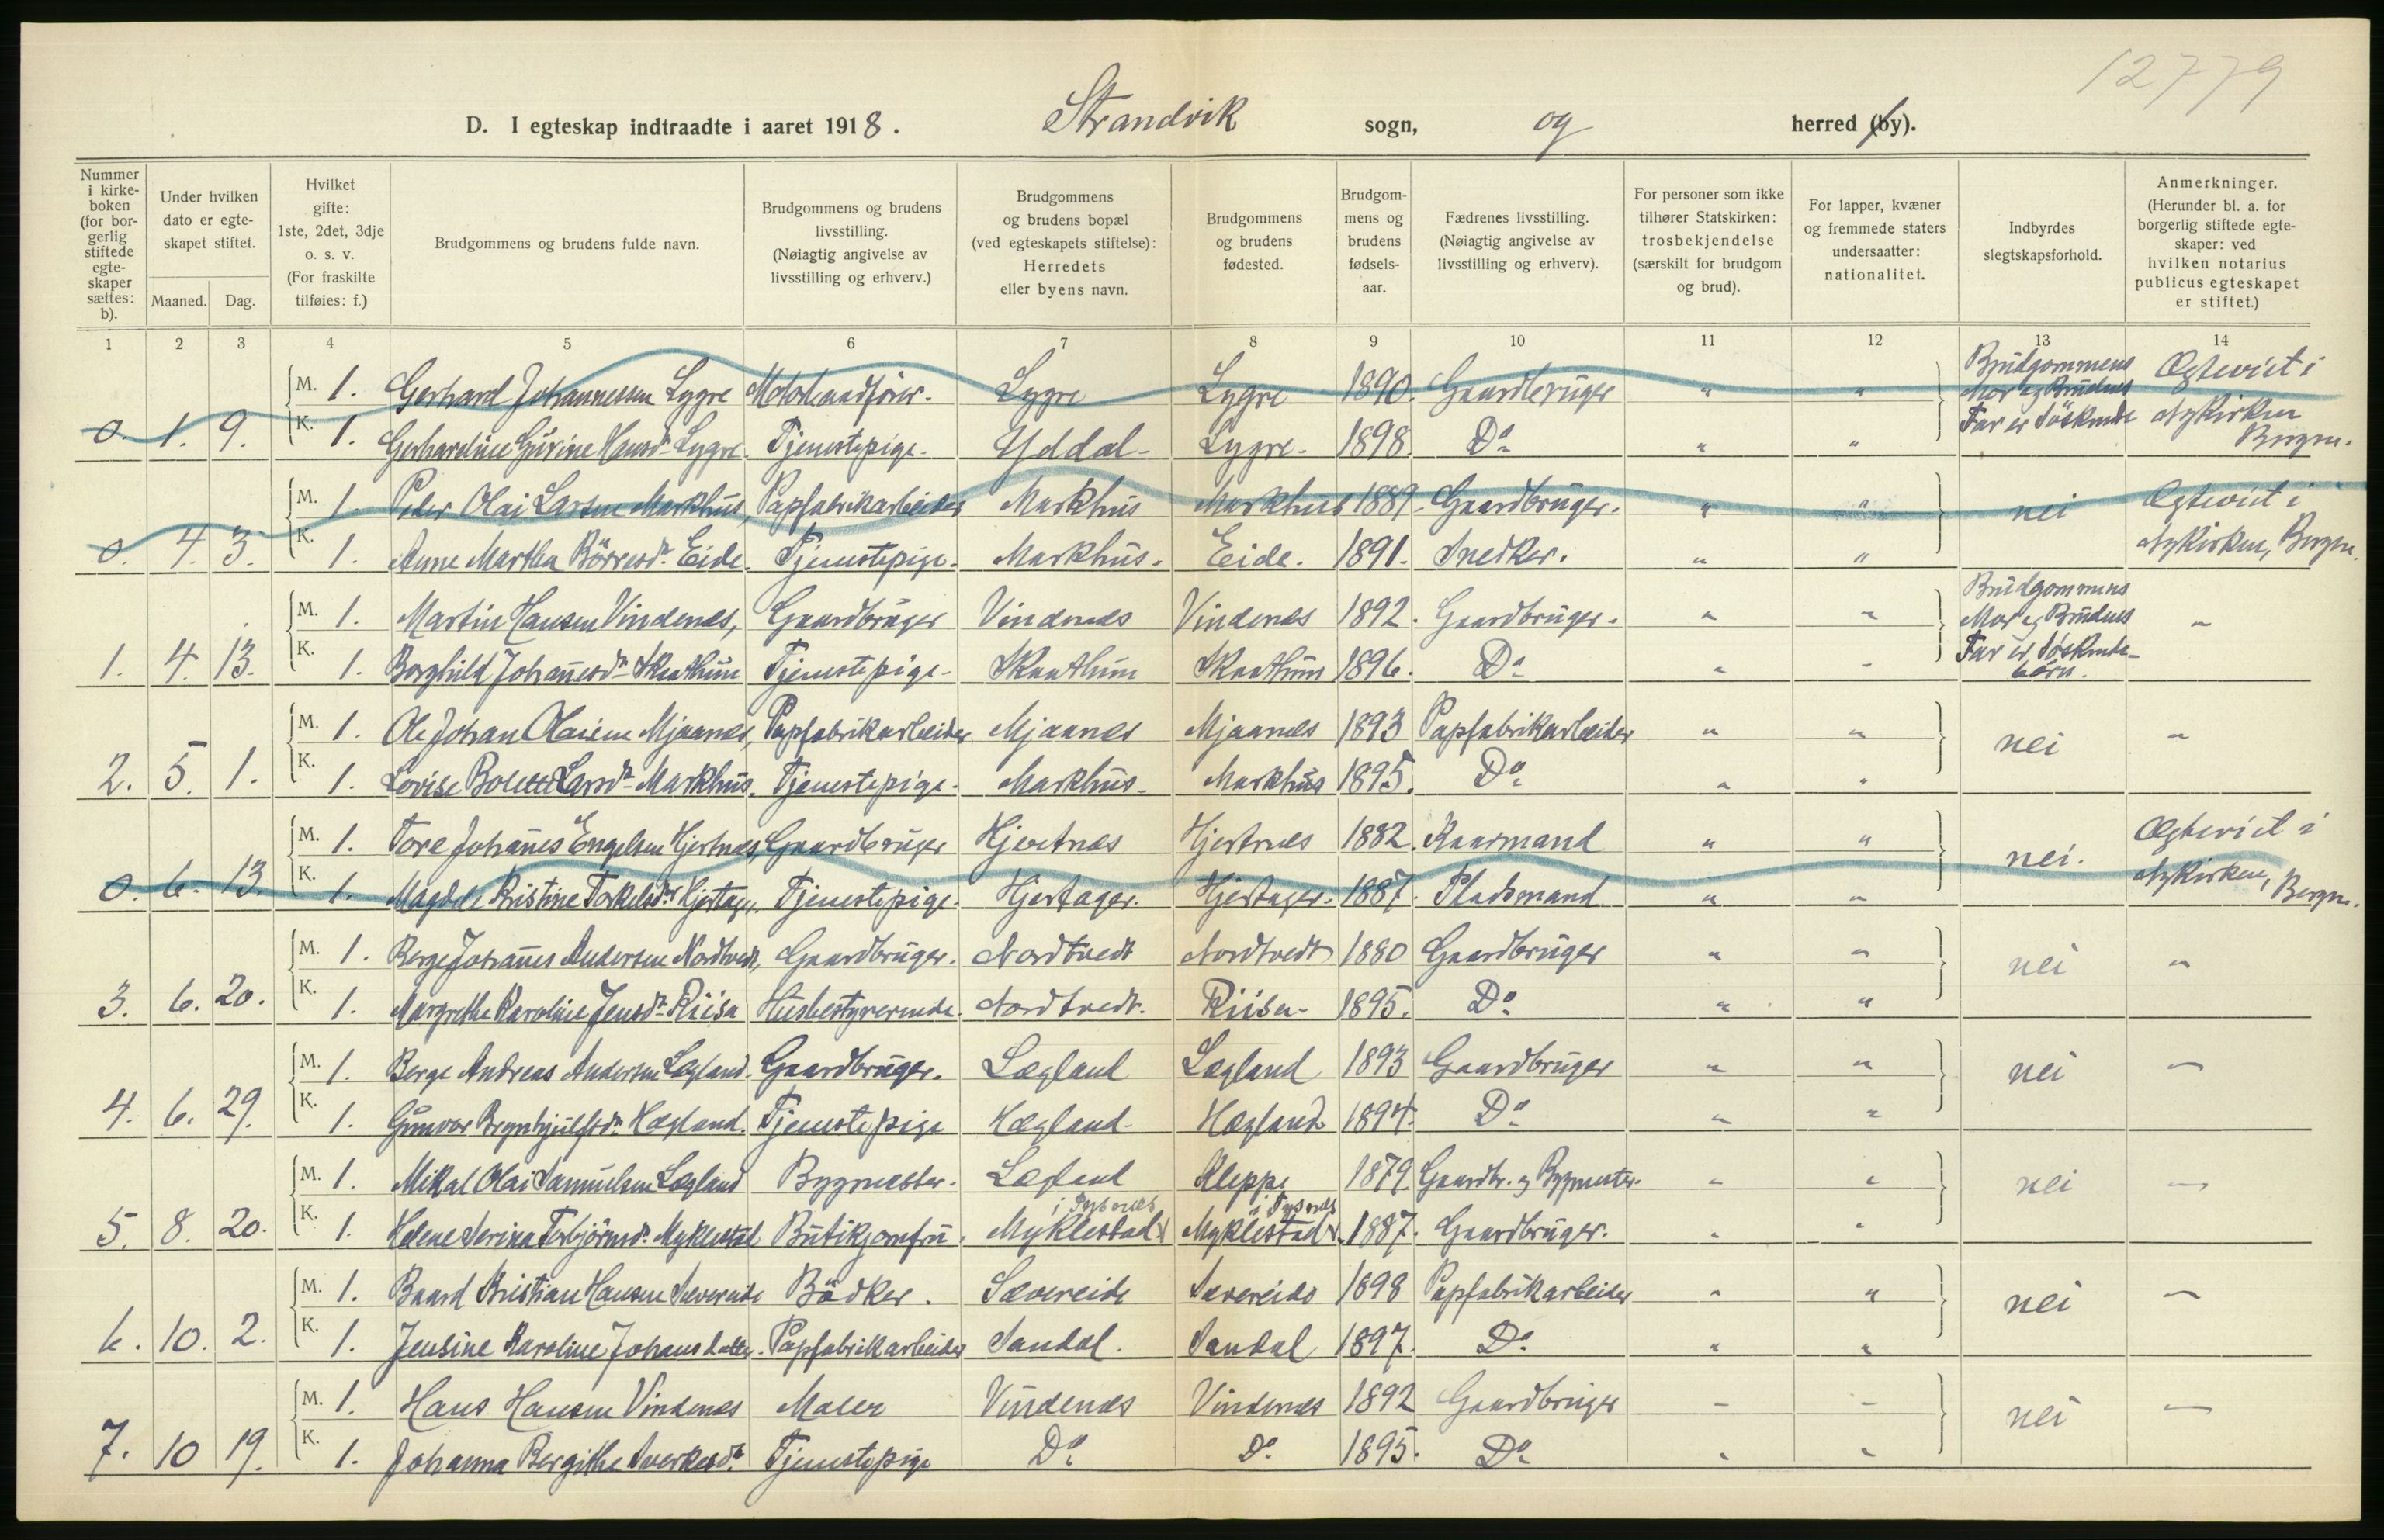 12779
D. I egteskap indtraadte i aaret 1918. Strandvik sogn, og herred (by).
Nummer i kirkeboken (for borgerlig stiftede egteskaper sættes: b).
Under hvilken dato er egteskapet stiftet.
Maaned. Dag.
Hvilket gifte: 1ste, 2det, 3dje o. s. v. (For fraskilte tilføies: f.)
Brudgommens og brudens fulde navn.
Brudgommens og brudens livsstilling. (Nøiagtig angivelse av livsstilling og erhverv.)
Brudgommens og brudens bopæl (ved egteskapets stiftelse): Herredets eller byens navn.
Brudgommens og brudens fødested.
Brudgommens og brudens fødselsaar.
Fædrenes livsstilling. (Nøiagtig angivelse av livsstilling og erhverv).
For personer som ikke tilhører Statskirken: trosbekjendelse (særskilt for brudgom og brud).
For lapper, kvæner og fremmede staters undersaatter: nationalitet.
Indbyrdes slegtskapsforhold.
Anmerkninger. (Herunder bl. a. for borgerlig stiftede egteskaper: ved hvilken notarius publicus egteskapet er stiftet.)
1 2 3 4 5 6 7 8 9 10 11 12 13 14
M. 1. Gerhard Johannessen Lygre Lygre Lygre 1890. Gaardbruger " " Brudgommens Mor og Brudens Far er Söskende Ægteviet i Nykirken Bergen.
0. 1. 9. K. 1. Gerhardine Gurine Hansdr Lygre. Tjenestepige. Uddal. Lygre. 1898. Do " "
M. 1. Peder Olai Larsen Markhus, Papfabrikarbeider Markhus Markhus 1889. Gaardbruger. " " nei Ægteviet i Nykirken, Bergen.
0. 4. 3. K. 1. Anne Martha Börresdr Eide. Tjenestepige. Markhus. Eide. 1891. Snedker. " "
M. 1. Martin Hansen Vindenes, Gaardbruger Vindenes Vindenes 1892. Gaardbruger. " " Brudgommens Mor og Brudens Far er Söskendebörn. "
1. 4. 13. K. 1. Borghild Johannesdr Skaathun Tjenestepige Skaathun Skaathun 1896. Do " "
M. 1. Ole Johan Olaisen Mjaanes, Papfabrikarbeider Mjaanes Mjaanes 1893 Papfabrikarbeider " " nei "
2. 5. 1. K. 1. Lovise Bolette Larsdr Markhus. Tjenestepige. Markhus. Markhus 1895. Do " "
M. 1. Tore Johannes Engelsen Hjertnes, Gaardbruger Hjertnes Hjertnes 1882. Kaarmand " " nei. Ægteviet i Nykirken, Bergen.
0. 6. 13. K. 1. Magdele Kristine Torkelsdr Hjertager. Tjenestepige. Hjertager. Hjertager. 1887. Pladsmand " "
M. 1. Berge Johannes Andersen Nordtvedt, Gaardbruger. Nordtvedt Nordtvedt 1880 Gaardbruger " " nei "
3. 6. 20. K. 1. Margrethe Karoline Jensdr Riisa Husbestyrerinde. Nordtvedt. Riisa. 1895. Do " "
M. 1. Berge Andreas Andersen Lægland. Gaardbruger. Lægland Lægland 1893 Gaardbruger " " nei "
4. 6. 29. K. 1. Gunvor Brynhjulfsdr Hægland. Tjenestepige Hægland Hægland 1894. Do " "
M. 1. Mikal Olai Samuelsen Lægland Bygmester. Lægland Kleppe 1879. Gaardbr. og Bygmester. " " nei "
5. 8. 20. K. 1. Helene Serina Torbjörnsdr Myklestad Butikjomfru. Myklestad i Tysnes Myklestad i Tysnes 1887. Gaardbruger. " "
M. 1. Baard Kristian Hansen Sævereide Bödker. Sævereide Sævereide 1898 Papfabrikarbeider " " nei "
6. 10. 2. K. 1. Jensine Karoline Johansdatter. Papfabrikarbeider Sandal. Sandal 1897. Do " "
M. 1. Hans Hansen Vindenes Maler Vindenes Vindenes 1892 Gaardbruger " " nei "
7. 10 19. K. 1. Johanna Bergithe Sverkesdr Tjenestepige Do Do 1895. Do " "